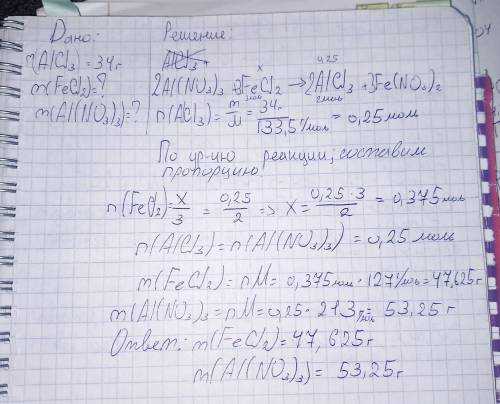 Дано:
Решение:
m(AlCl₃) = 34г
m(FeCl₂) = ?
m(Al(NO₃)₃) = ?
AlCl₃ +
x 0,25
2Al(NO₃)₃ + 3FeCl₂ → 2AlCl₃ + 3Fe(NO₃)₂
3моль 2моль
n(AlCl₃) = m/M = 34г/133,5г/моль = 0,25моль
По ур-ию реакции; составим
пропорцию
n(FeCl₂) = x/3 = 0,25/2 => x = 0,25·3/2 = 0,375моль
n(AlCl₃) = n(Al(NO₃)₃) = 0,25 моль
m(FeCl₂) = nM = 0,375моль · 127г/моль = 47,625г
m(Al(NO₃)₃ = nM = 0,25 · 213г/моль = 53,25г
Ответ: m(FeCl₂) = 47,625г
m(Al(NO₃)₃) = 53,25г